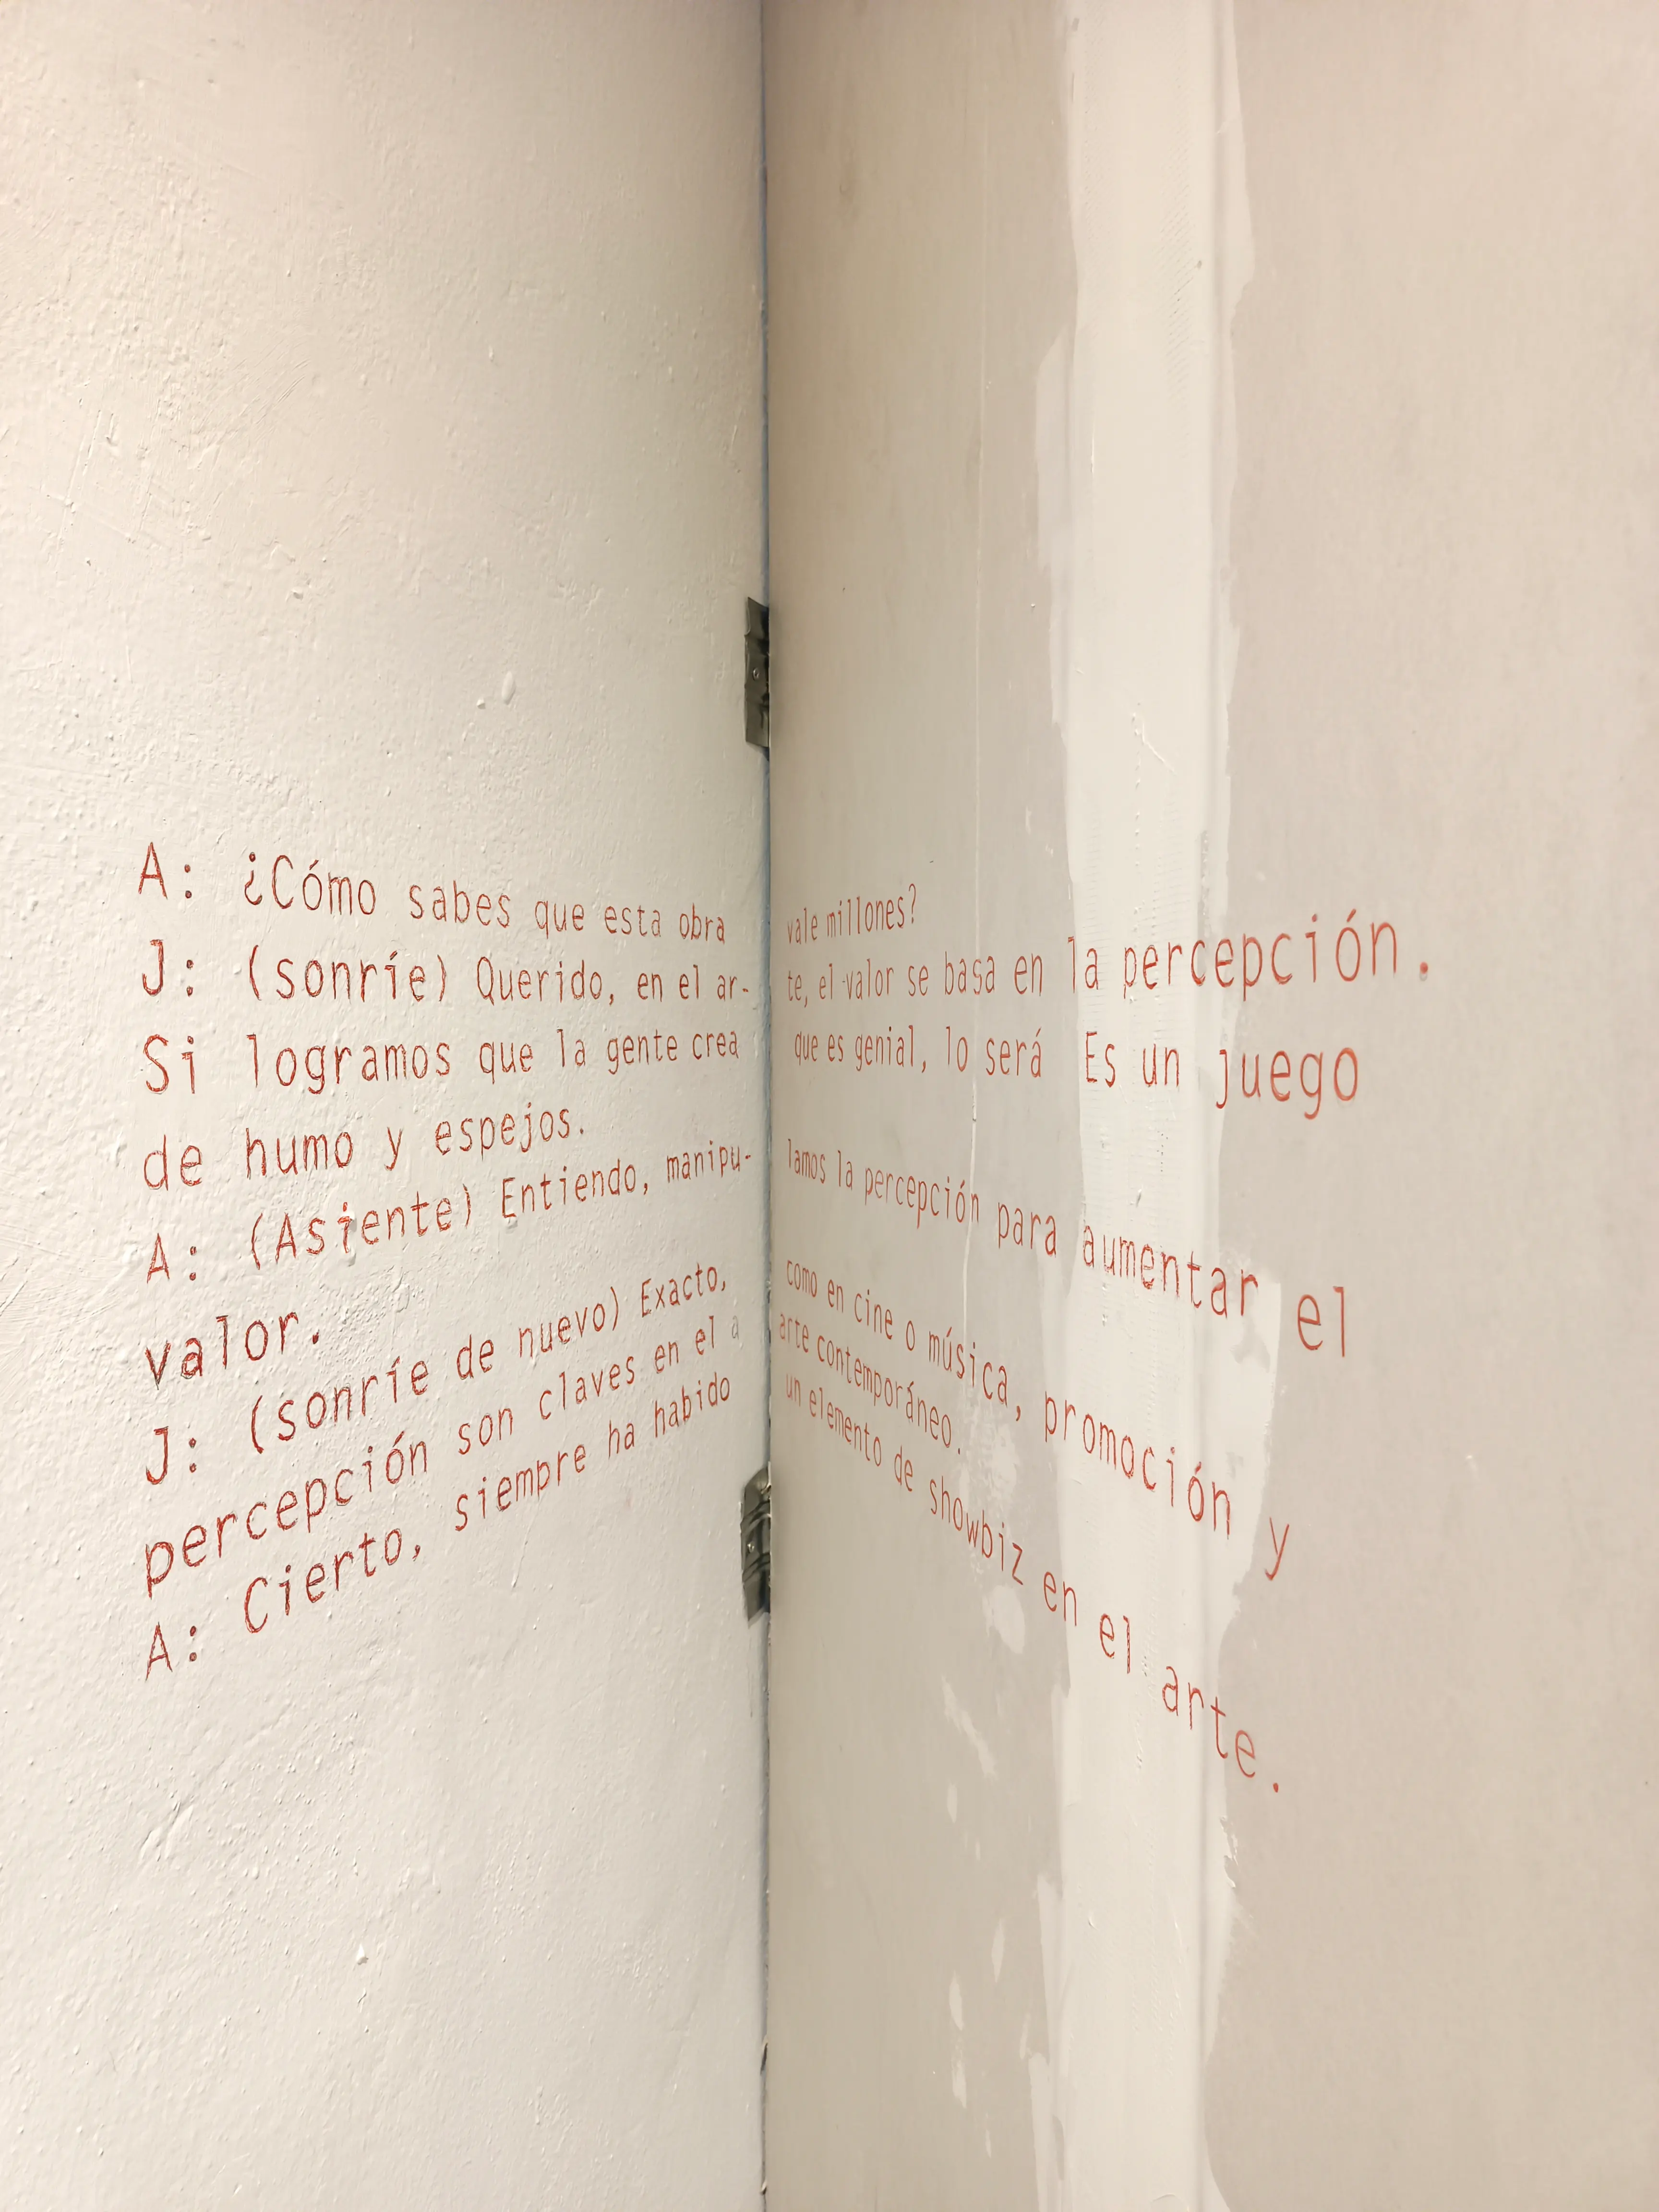 A: ¿Cómo sabes que esta obra vale millones?
J: (sonríe) Querido, en el ar- te, el valor se basa en la percepción.
Si logramos que la gente crea que es genial, lo será Es un juego
de humo y espejos.
A: (Asiente) Entiendo, manipu- lamos la percepción para aumentar el
valor.
J: (sonríe de nuevo) Exacto, como en cine o música, promoción y
percepción son claves en el a arte contemporáneo.
A: Cierto, siempre ha habido un elemento de showbiz en el arte.